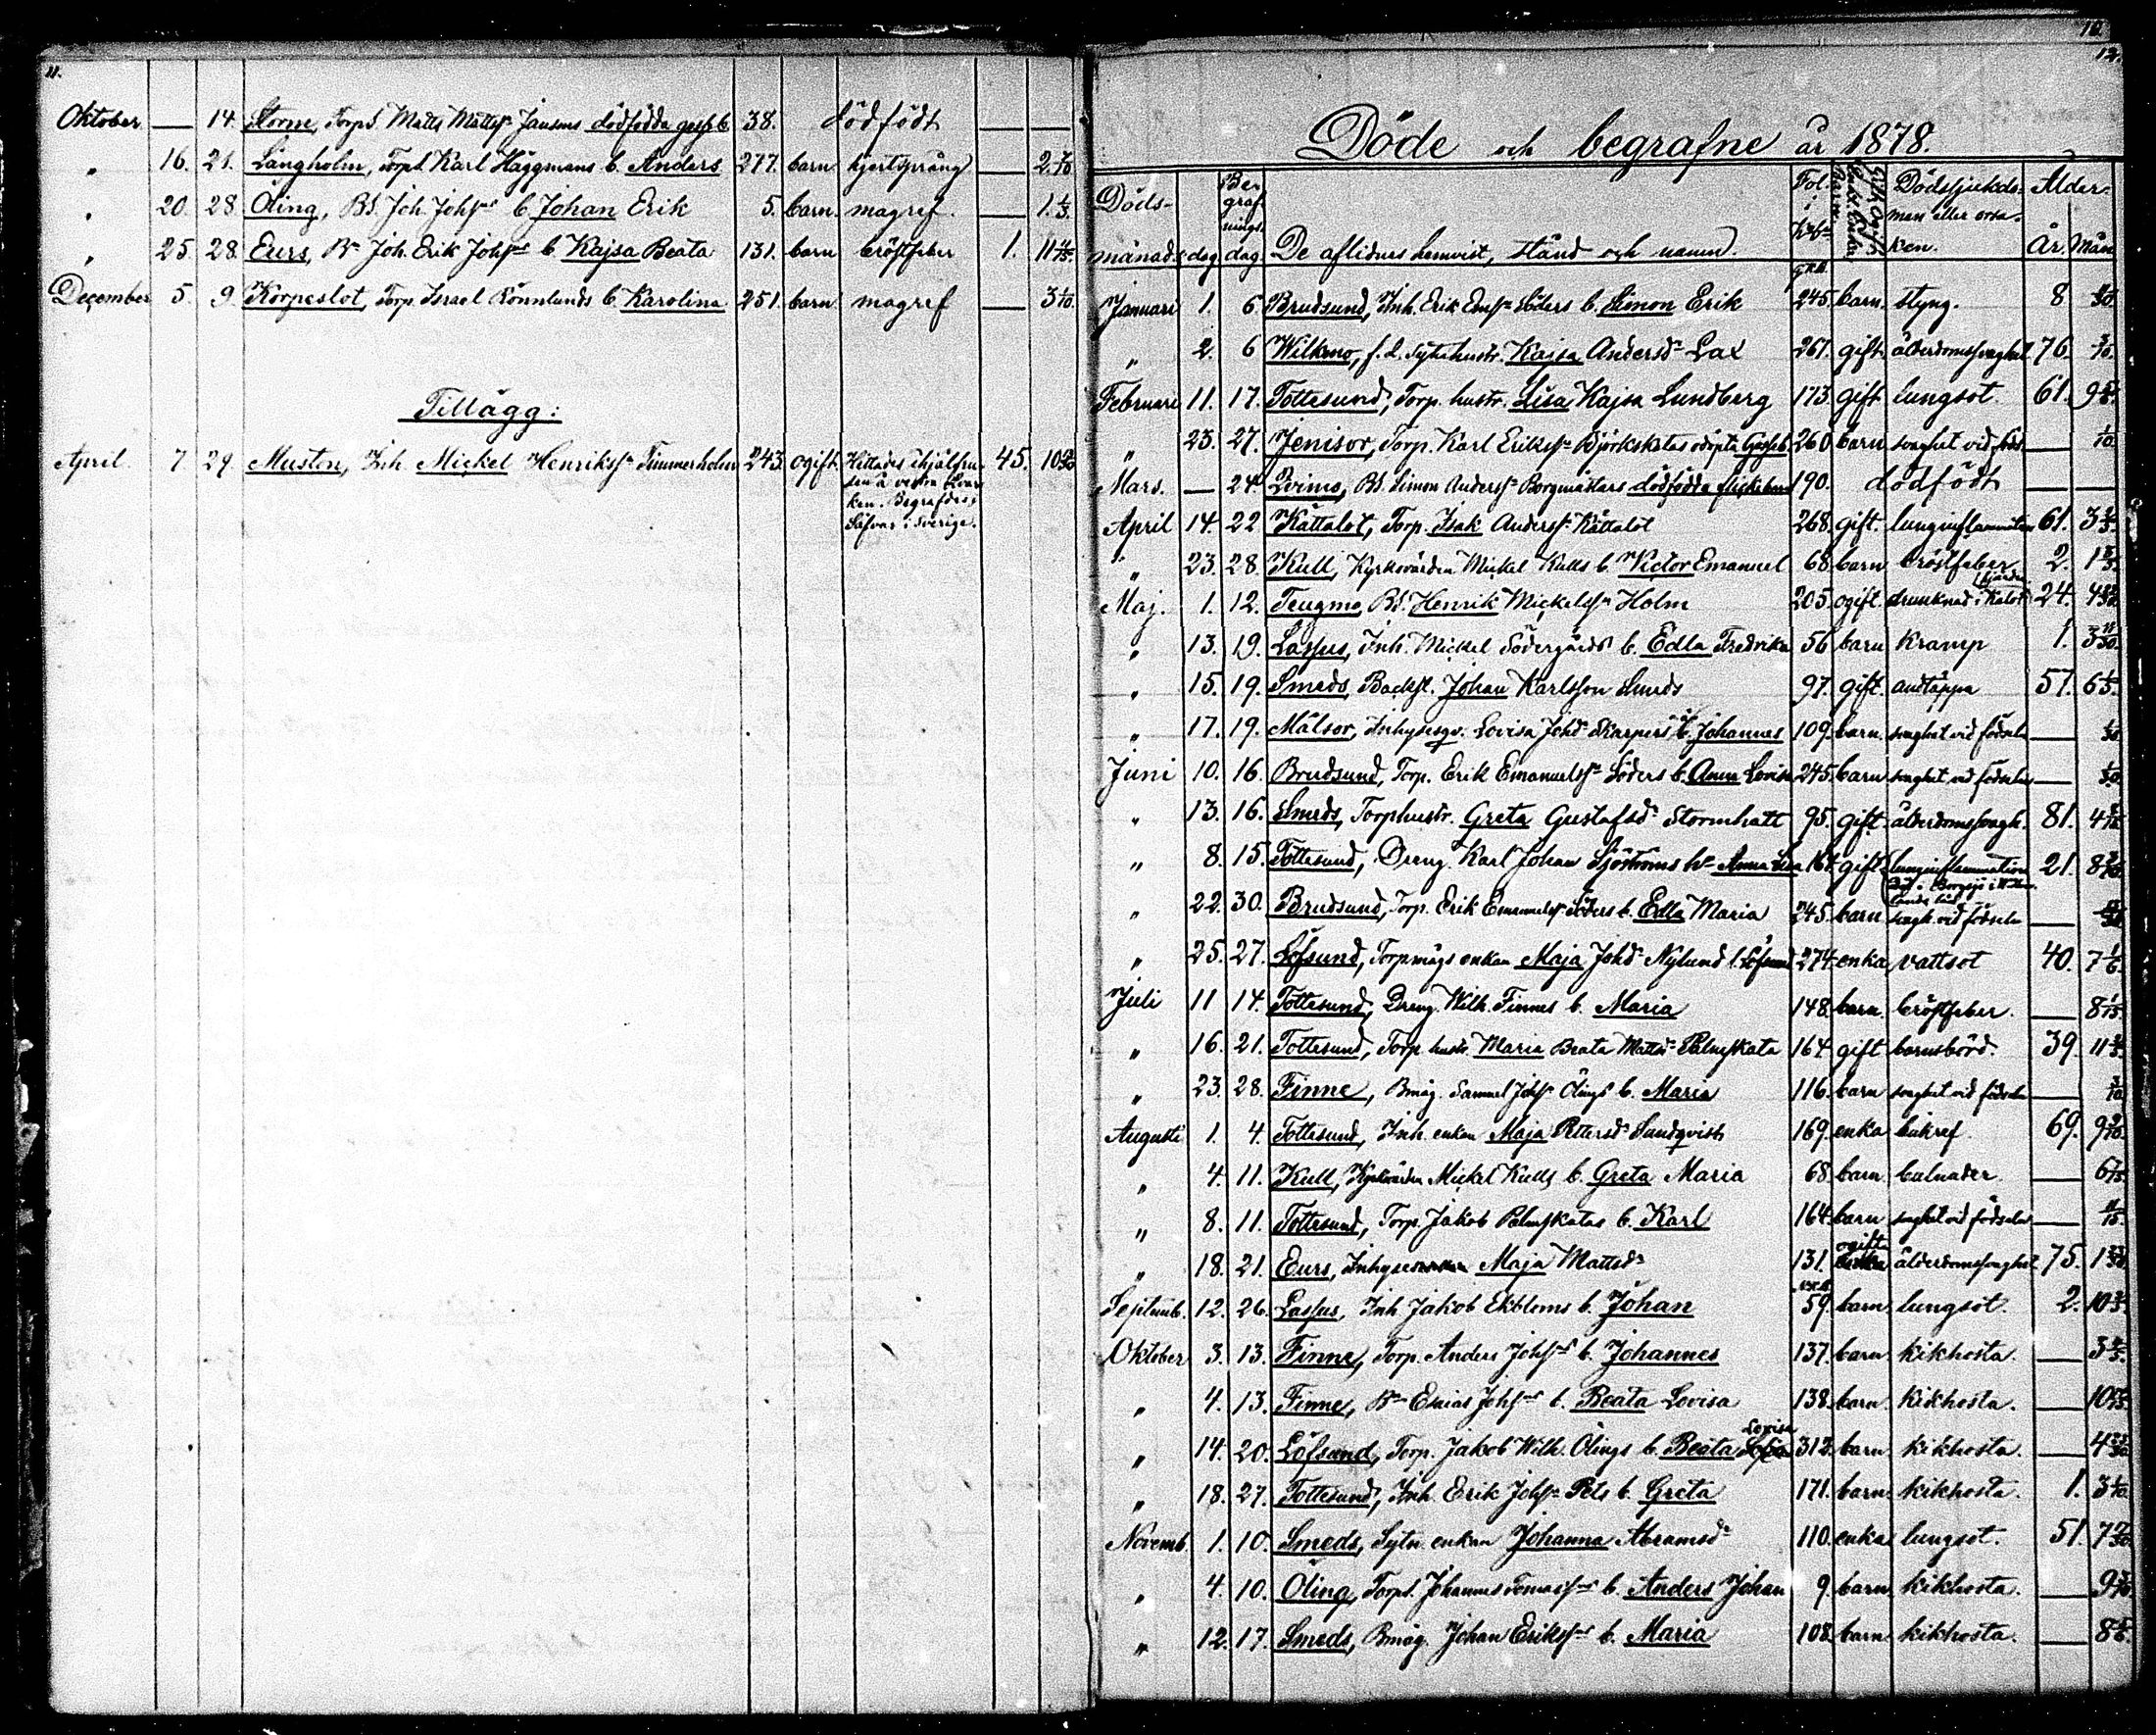 11.
Oktober — 14. Storne, Torpd. Matts Mattss. Jansons dödfödda gosseb. 38. dödfödt — —
" 16. 21. Långholm, Torpd. Karl Häggmans b. Anders 277. barn hjertsprång — 2 7/10
" 20. 28. Öling, Bd. Joh. Johss b. Johan Erik 5. barn. magref. — 1 1/3.
" 25. 28. Eurs, Bn Joh. Erik Johss b. Kajsa Beata 131. barn bröstfeber 1. 11 4/15.
December 5. 9. Korpeslot, Torp. Israel Rönnlunds b. Karolina 251. barn magref — 3 1/10.
Tillägg:
April. 7. 29. Muston, Inh. Mickel Henrikss Timmerholm 243. ogift. Hittades ihjälfru- 45. 10
sen å vestra Qvar-
ken. Begrafdes i
Säfvar i Sverige.
12.
Döde och begrafne år 1878.
Döds- Be- Fol. Dödssjukdo- Ålder
graf- i men eller orsa-
nings-
månad dag dag De aflidnes hemvist, stånd och namn. ken. År. Mån
Januari 1. 6. Brudsund, Inh. Erik Emss Söders b. Simon Erik 245. barn. styng. 8
" 2. 6 Wilkmo, f.d. Sytn.hustr. Kajsa Andersdr Lax 267. gift. ålderdomssvaghet 76. 3/10.
Februari 11. 17. Tottesund, Torp. hustr. Lisa Kajsa Lundberg 173. gift lungsot. 61. 9
" 23. 27. Jenisor, Torp. Karl Erikss Björkskatas odöpta gosseb. 260 barn svaghet vid föds. — 1/10.
Mars. — 24. Lvimo, Bd. Simon Anderss Borgmästars dödfödda flickebarn 190. dödfödt — —
April 14. 22 Kåttalot, Torp. Isak Anderss Kåttalot 268. gift. lunginflammation 61. 3
" 23. 28. Kull, Kyrkovärden Mickel Kulls b. Victor Emanuel 68 barn bröstfeber 2. 1
Maj. 1. 12. Teugmo, Bd. Henrik Mickelss Holm 205. ogift. drunknad i Kalot fjärden 24. 4
" 13. 19. Lassus, Inh. Mickel Södergårds b. Edla Fredrika 56 barn kramp 1. 3 11/30.
" 15. 19. Smeds, Backst. Johan Karlsson Smeds 97. gift. andtäppa 57. 6 1/5.
" 17. 19. Målsor, Inhysesqv. Lovisa Johdr Skarpers b. Johannes 109. barn. svaghet vid födseln — 1/30.
Juni 10. 16. Brudsund, Torp. Erik Emanuelss Söders b. Anna Lovisa 245. barn svaghet vid födseln — 1/30.
" 13. 16. Smeds, Torphustr. Greta Gustafsdr Stormhatt 95. gift. ålderdomssvagh. 81. 4
" 8. 15. Tottesund, Dreng. Karl Johan Sjöströms hu Anna Lisa 164. gift lunginflammation 21. 8
Död i Bergsjö i W.
lands län
" 22. 30. Brudsund, Torp. Erik Emanuelss Söders b. Edla Maria 245. barn svagh. vid födseln —
" 25. 27. Löfsund, Torpmågs enkan Maja Johdr Nylund l. Löfsund 274. enka vattsot 40. 7 1/6.
Juli 11 14. Tottesund, Dreng. Wilh. Finnes b. Maria 148. barn. bröstfeber. — 8 1/15.
" 16. 21. Tottesund, Torp. hustr. Maria Beata Mattsdr Palmskata 164 gift barnsbörd. 39. 11
" 23. 28. Finne, Bmåg. Samuel Johss Ölings b. Maria 116. barn svaghet vid födseln — 3/10
Augusti 1. 4. Tottesund, Inh. enkan Maja Pettersdr Sandqvist 169. enka bukref. 69. 9
" 4. 11. Kull, Kyrkvärden Mickel Kulls b. Greta Maria 68. barn bulnader. — 6
" 8. 11. Tottesund, Torp. Jakob Palmskatas b. Karl 164. barn svaghet vid födseln —
" 18. 21. Eurs, Inhyses Maja Mattsdr 131. ogift ålderdomssvaghet 75. 1
Septemb. 12. 26. Lassus, Inh Jakob Ekbloms b. Johan 59. barn lungsot. 2. 10
Oktober 3. 13. Finne, Torp. Anders Johss b. Johannes 137. barn kikhosta. — 3
" 4. 13. Finne, Bn Esaias Johss b. Beata Lovisa 138. barn. kikhosta. — 10
" 14. 20. Löfsund, Torp. Jakob Wilh. Ölings b. Beata Sofia Lovisa 312. barn kikhosta. — 4
" 18. 27. Tottesund, Inh. Erik Johss Pets b. Greta 171. barn. kikhosta. 1. 3 1/10.
Novemb. 1. 10. Smeds, Sytn. enkan Johanna Abramsdr 110. enka lungsot. 51. 7
" 4. 10. Öling, Torpd. Johannes Tomass b. Anders Johan 9. barn. kikhosta. — 9
" 12. 17. Smeds, Bmåg. Johan Erikss b. Maria 108. barn kikhosta. — 8